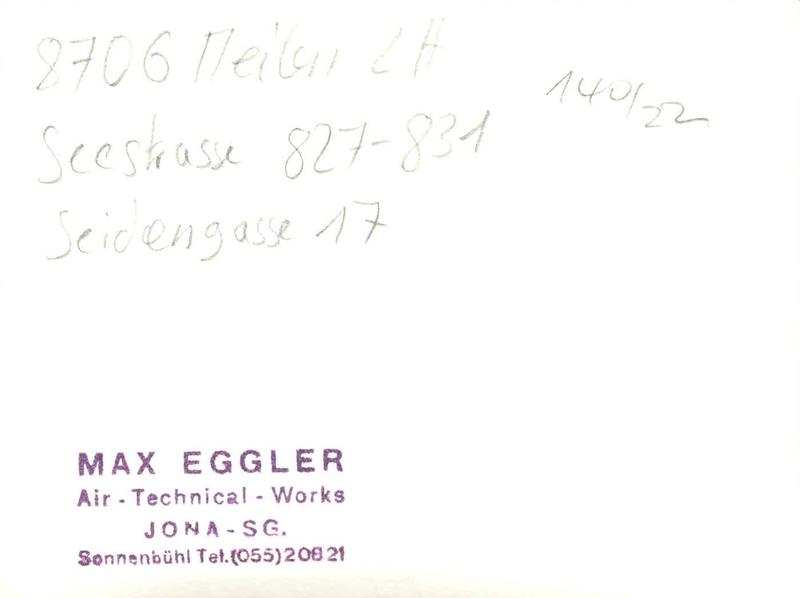 8706 Meilen ZH
140/22
Seestrasse 827-831
Seidengasse 17
MAX EGGLER
Air - Technical - Works
JONA - SG.
Sonnenbühl Tel. (055) 20821